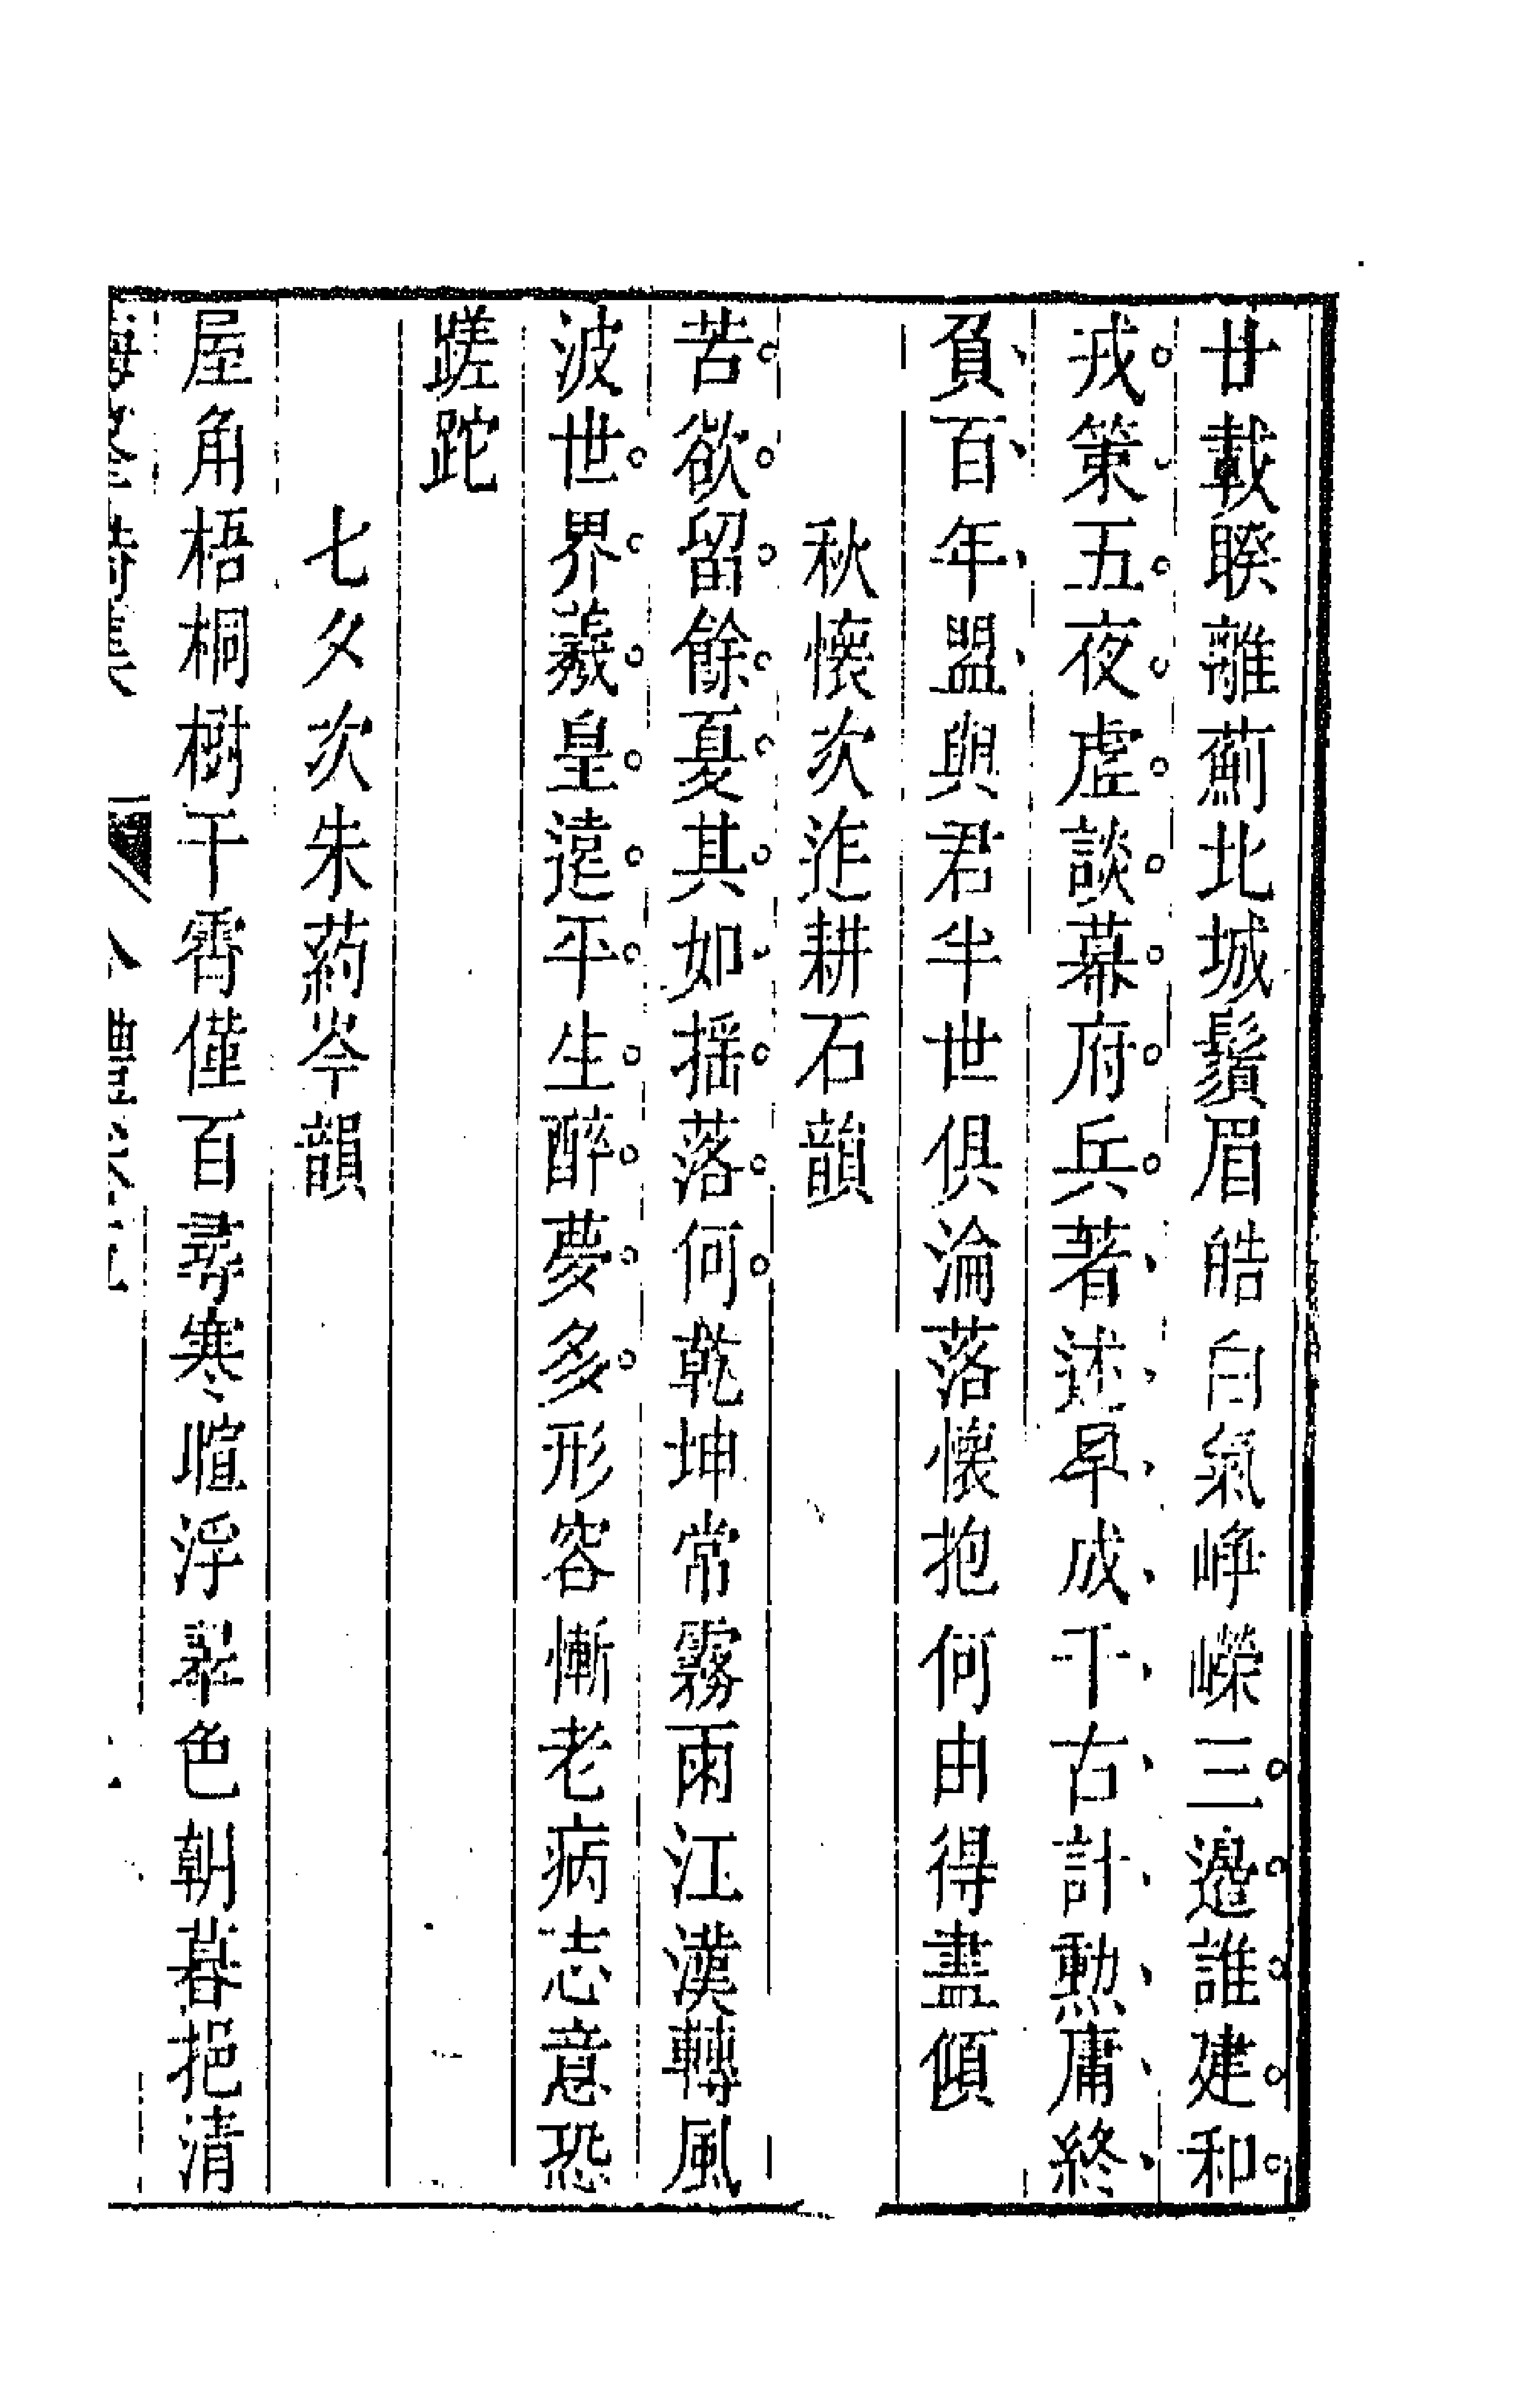 廿載暌離薊北城鬚眉皓白氣崢嶸三邊誰建和
戎策五夜虛談幕府兵著述早成千古計勲庸終
負百年盟與君半世俱淪落懷抱何由得盡傾
秋懷次迮耕石韻
苦欲留餘憂其如摇落何乾坤常霧雨江漢轉風
波世界羲皇遠平生醉夢多形容慚老病志意恐
蹉跎
七夕次朱葯岑韻
屋角梧桐樹干霄僅百尋寒暄浮翠色朝暮挹清